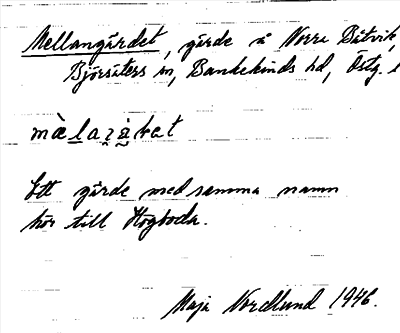 Mellangärdet, gärde å Norra Båtvik,
Björsäters sn, Bankekinds hd, Östg.
Ett gärde med samma namn
hör till Högboda.
Maja Nordlund 1946.